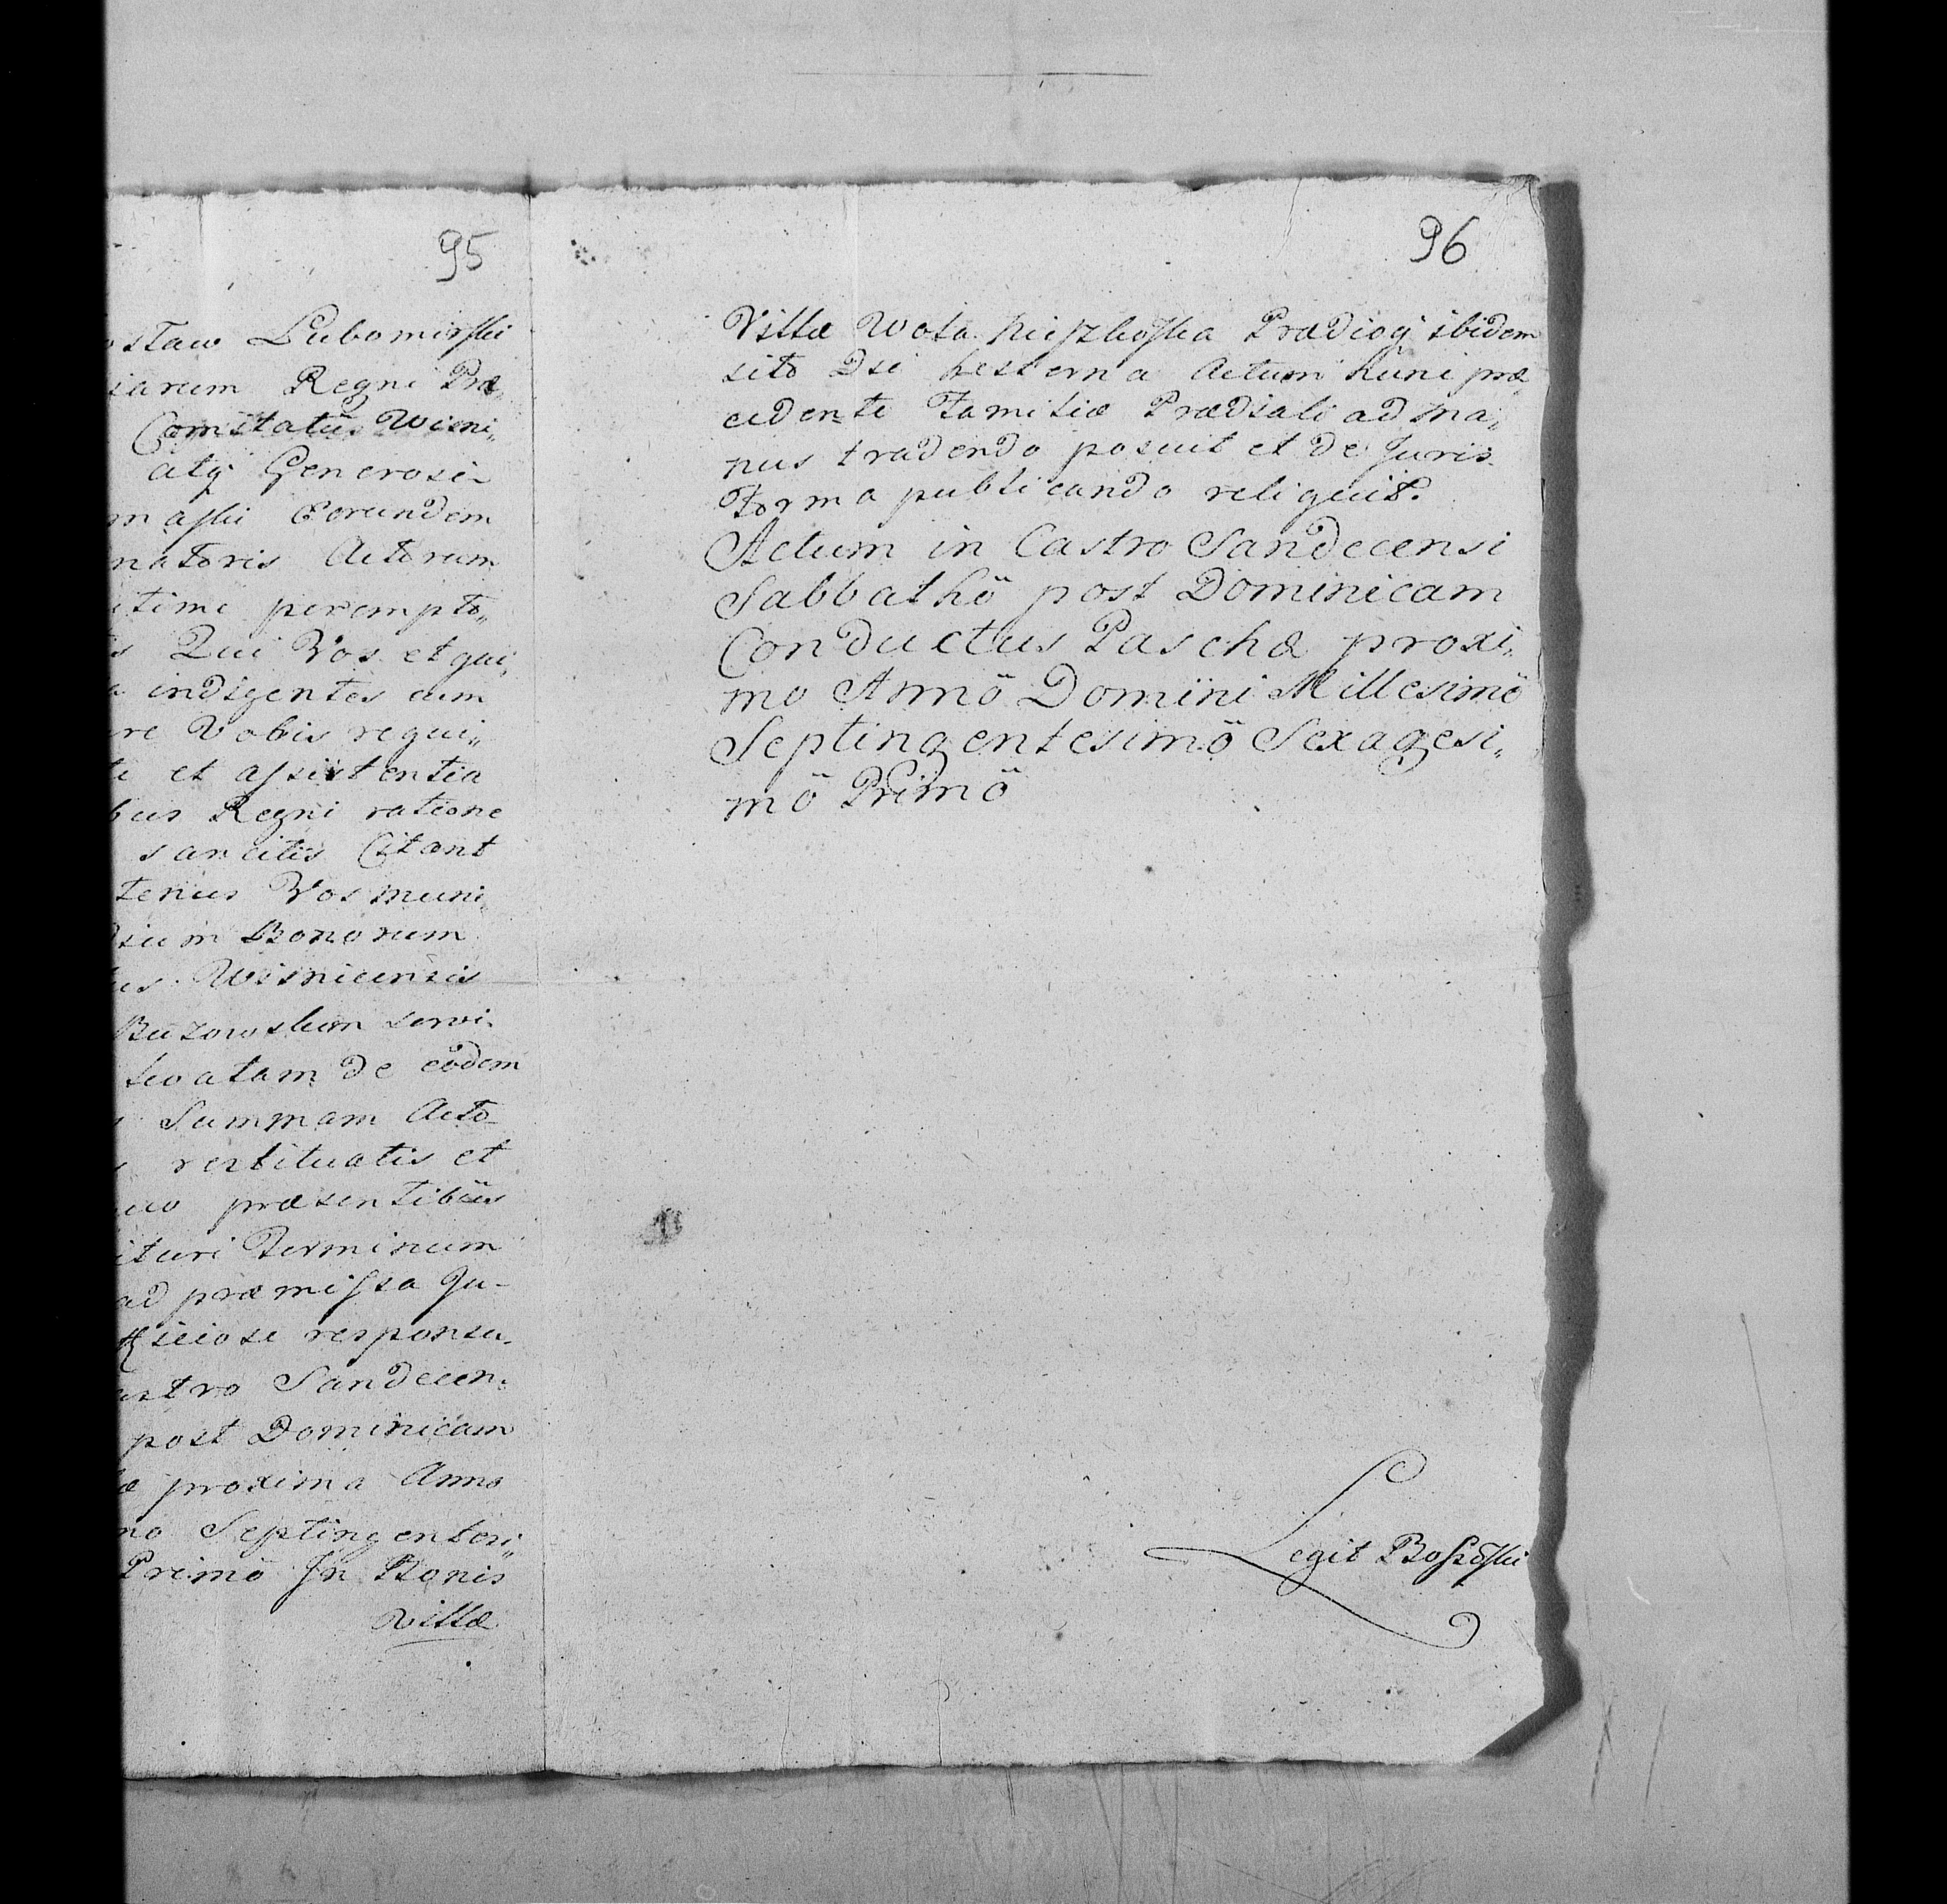 95
ostaw Lubomirski
iarum Regni Præ„
Comitatûs Wisni„
atq Generosi
maski Eorundem
natoris Actorum
itime perempto„
s Qui Vos et qui„
a indigentes cum
re Vobis requi„
te et assistentia
bus Regni ratione
sancitis Citant
tenus Vos muni
dium Bonorum
us Wisnicensis
Buzowskim servi
levatam de eôdem
s Summam Acto
s restituatis et
uo præsentibus
ituri Terminum
ad præmissa Ju-
diciose responsu
astro Sandecen:
post Dominicam
æ proxima Anno
mo Septingentesi„
Primô In Bonis
Villæ
96
Villæ Wola Prædioq ibidem
sito Die hesterna Actum hunc præ„
cedente Familiæ Prædiali ad ma„
nus tradendo posuit et de Juris
forma publicando reliquit.
Actum in Castro Sandecensi
Sabbathô post Dominicam
Conductus Paschæ proxi„
mo Annô Domini Millesimô
Septingentesimô Sexagesi„
mô Primô
Legit